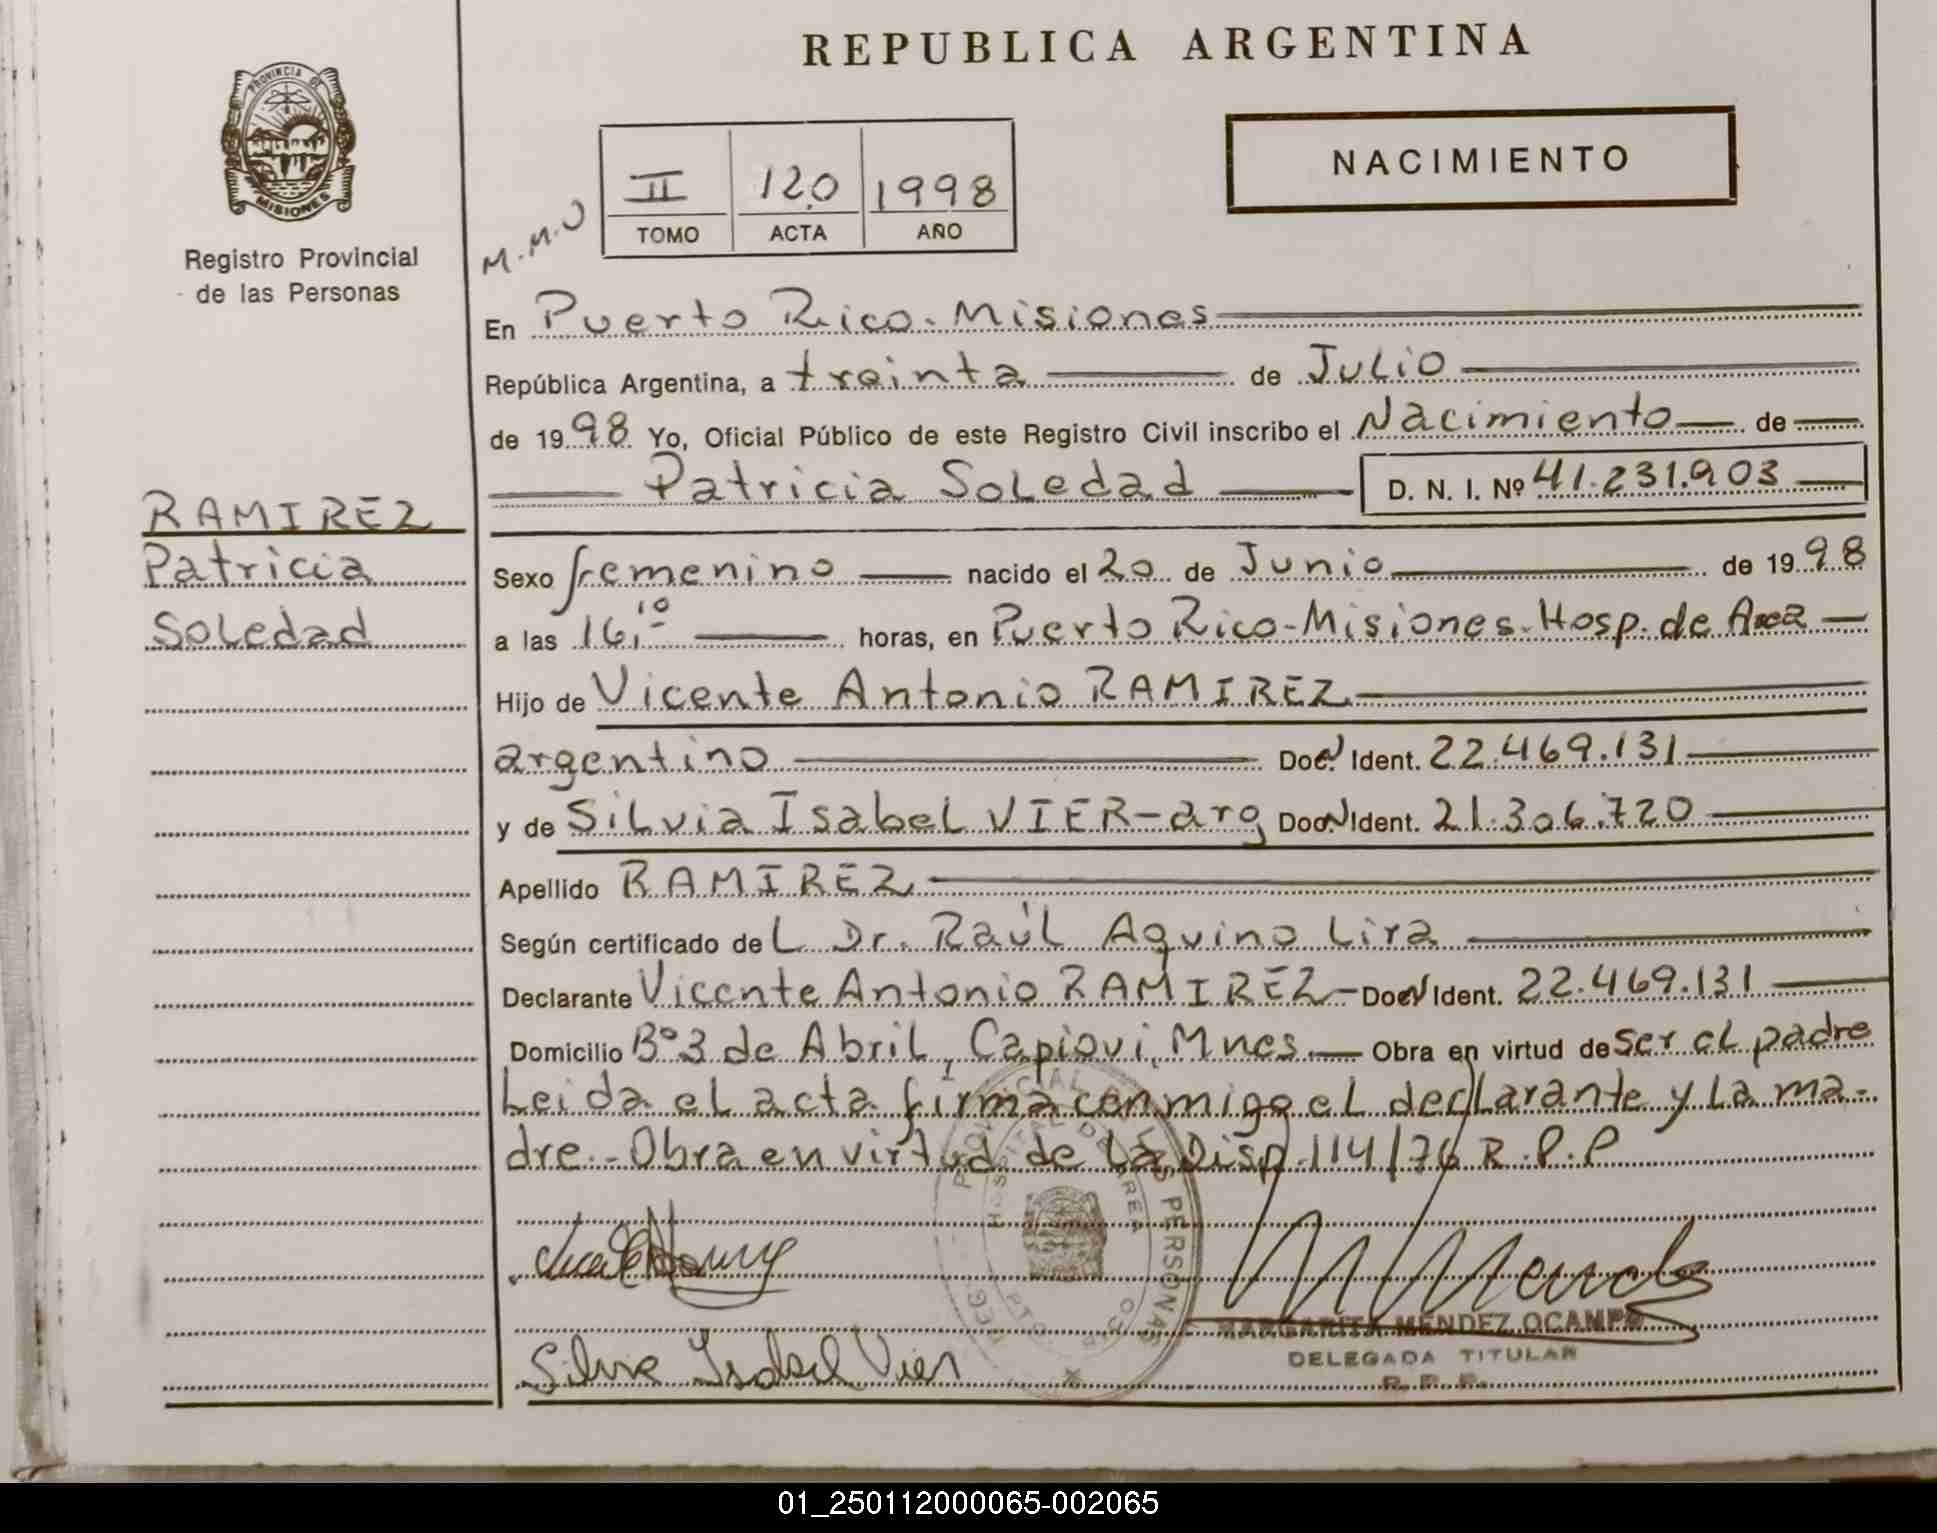 REPUBLICA ARGENTINA
PROVINCIA DE
MISIONES
Registro Provincial
de las Personas
NACIMIENTO
M.M.O
II 120 1998
TOMO ACTA AÑO
En Puerto Rico-Misiones
República Argentina, a treinta de Julio
de 1998 Yo, Oficial Público de este Registro Civil inscribo el Nacimiento de
Patricia Soledad D. N. I. Nº 41.231.903
RAMIREZ
Patricia
Soledad
Sexo femenino nacido el 20 de Junio de 1998
a las 16,10 horas, en Puerto Rico-Misiones-Hosp. de Area
Hijo de Vicente Antonio RAMIREZ
argentino Doc. Ident. 22.469.131
y de Silvia Isabel VIER-arg Doc. Ident. 21.306.720
Apellido RAMIREZ
Según certificado del Dr. Raúl Aquino Lira
Declarante Vicente Antonio RAMIREZ-Doc. Ident. 22.469.131
Domicilio Bº 3 de Abril, Capiovi, Mnes. Obra en virtud de ser el padre
Leida el acta firma conmigo el declarante y la ma-
dre.- Obra en virtud de la Disp. 114/76 R.P.P
PROVINCIAL DE LAS PERSONAS
HOSPITAL DE AREA
PTO.
Silvia Isabel Vier
MARGARITA MENDEZ OCAMPO
DELEGADA TITULAR
R. P. P.
01_250112000065-002065